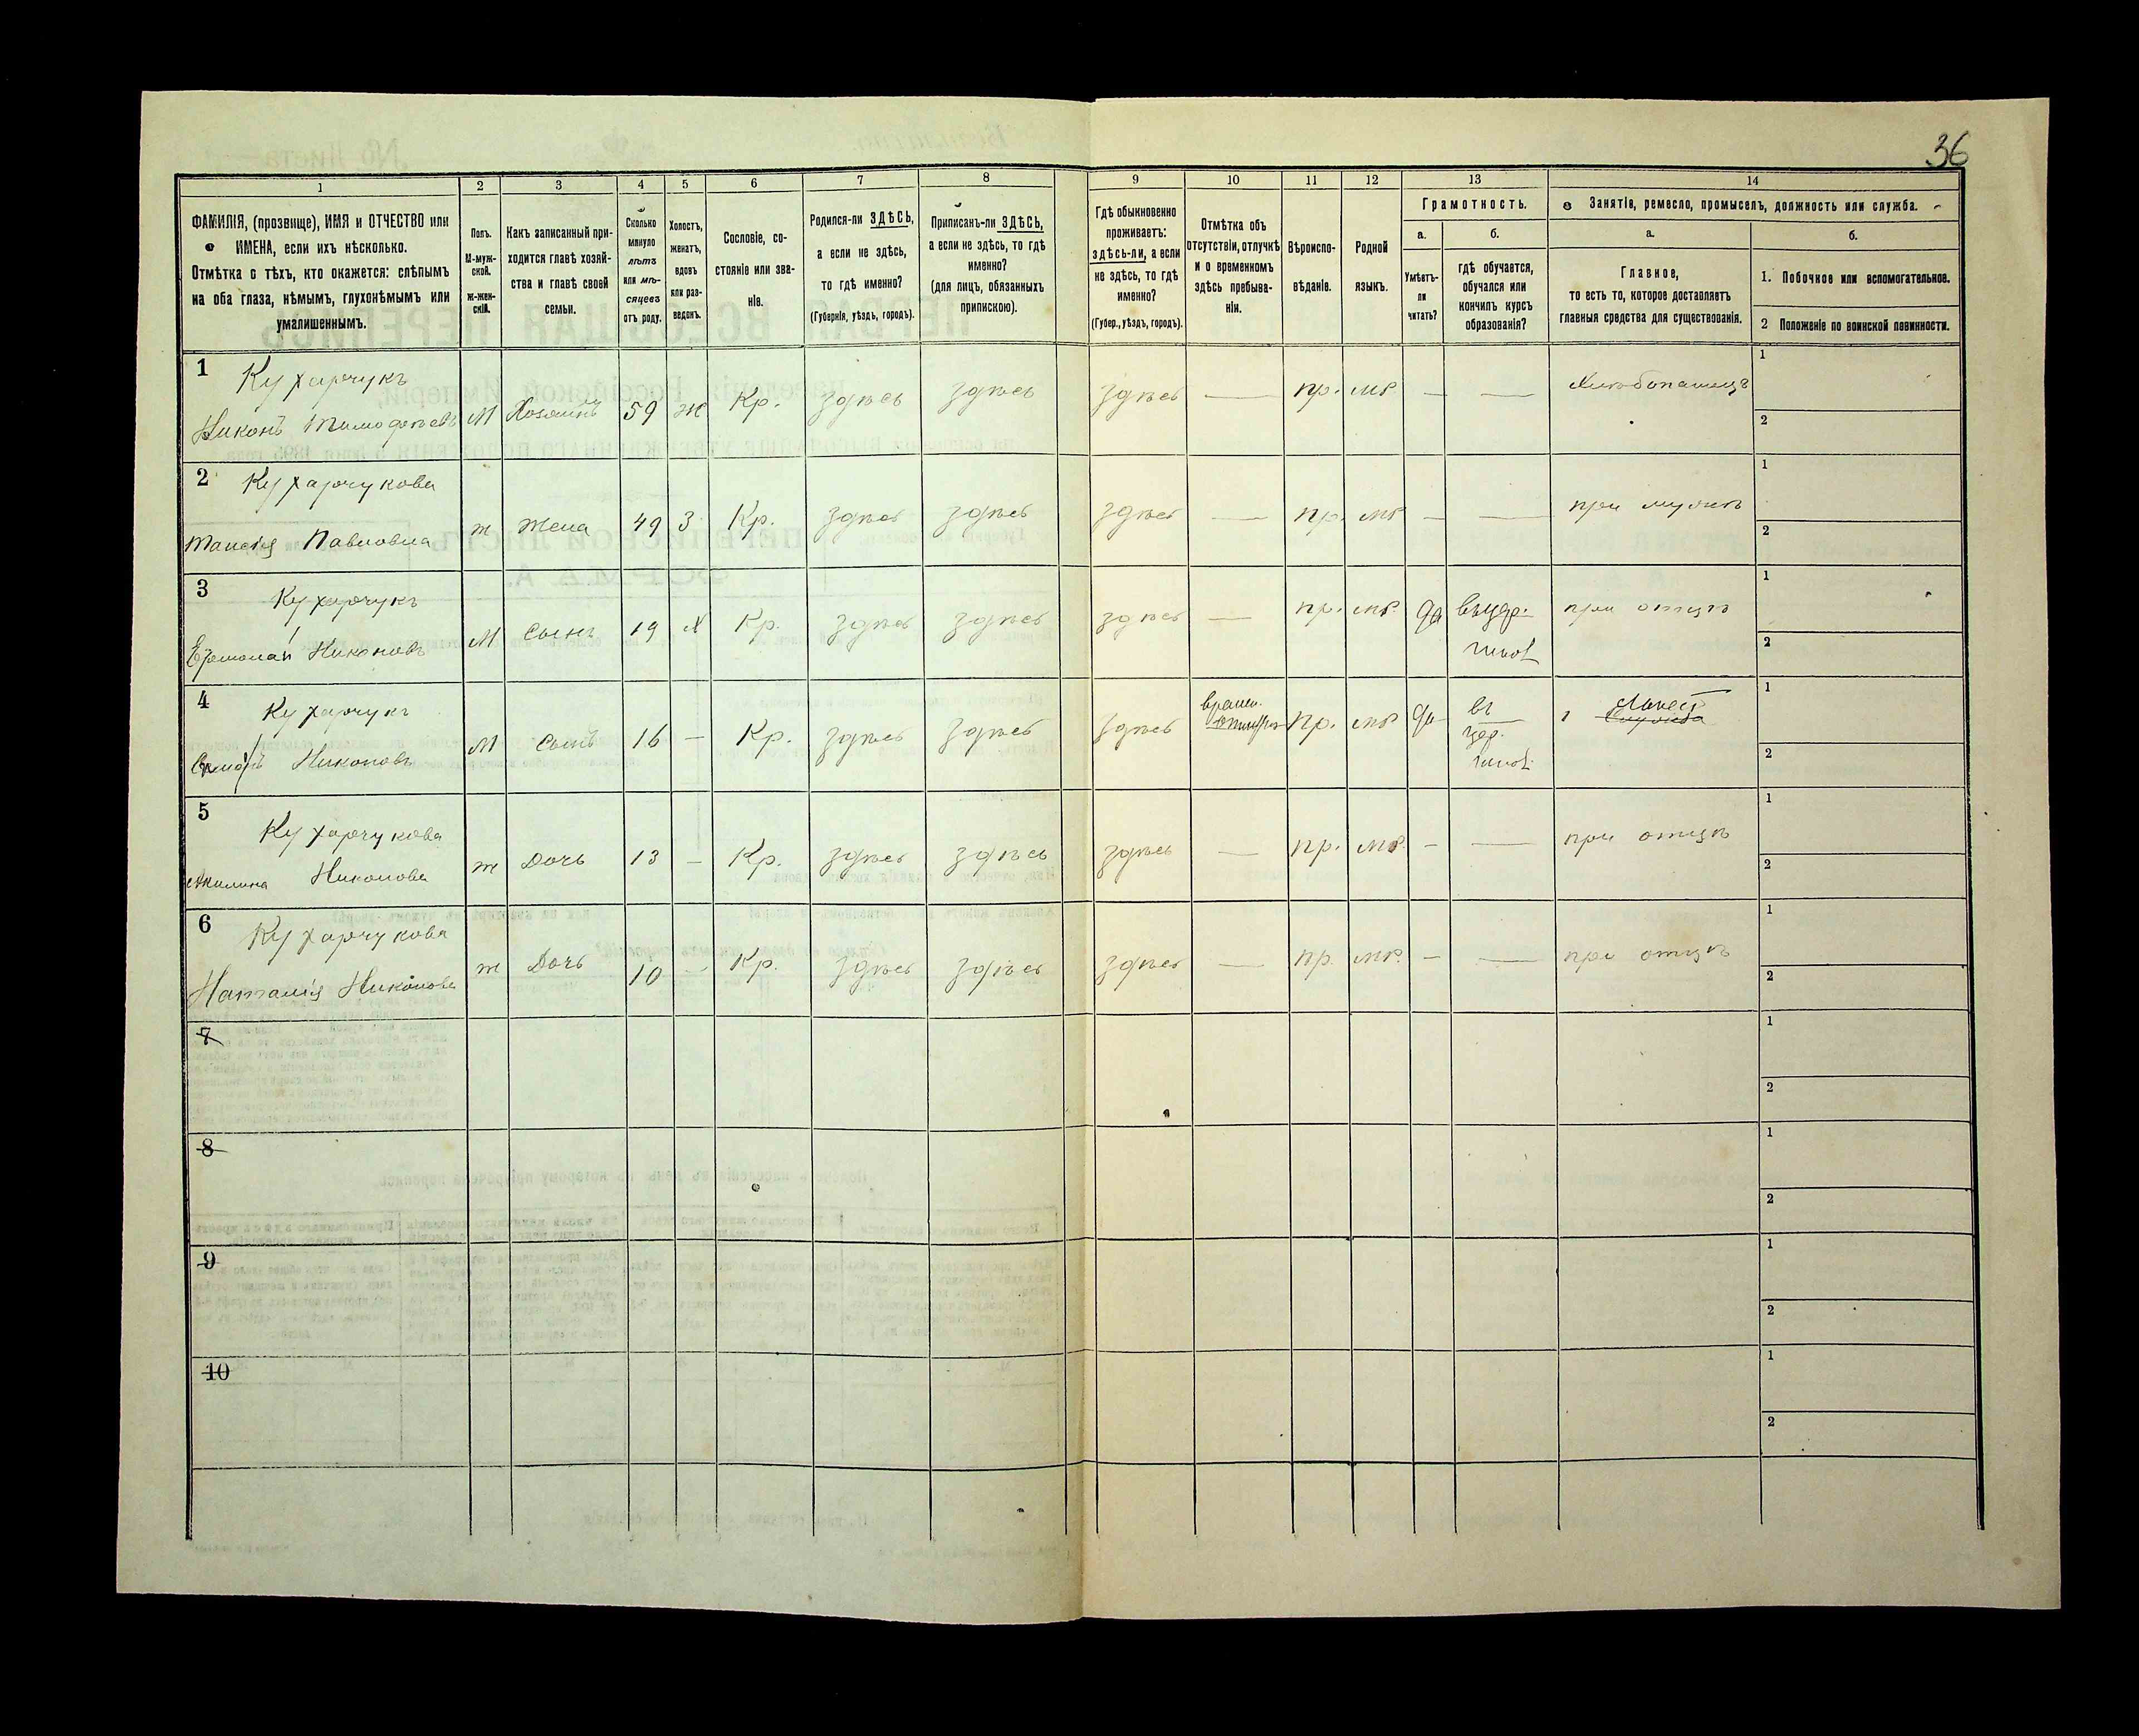 36
1 2 3 4 5 6 7 8 9 10 11 12 13 14
ФАМИЛІЯ, (прозвище), ИМЯ и ОТЧЕСТВО или
ИМЕНА, если ихъ нѣсколько.
Отмѣтка о тѣхъ, кто окажется: слѣпымъ
на оба глаза, нѣмымъ, глухонѣмымъ или
умалишеннымъ.
Полъ.
М-муж-
ской.
ж-жен-
скій.
Какъ записанный при-
ходится главѣ хозяй-
ства и главѣ своей
семьи.
Сколько
минуло
лѣтъ
или мѣ-
сяцевъ
отъ роду.
Холостъ,
женатъ,
вдовъ
или раз-
веденъ.
Сословіе, со-
стояніе или зва-
ніе.
Родился-ли ЗДѢСЬ,
а если не здѣсь,
то гдѣ именно?
(Губернія, уѣздъ, городъ).
Приписанъ-ли ЗДѢСЬ,
а если не здѣсь, то гдѣ
именно?
(для лицъ, обязанныхъ
припискою).
Гдѣ обыкновенно
проживаетъ:
здѣсь-ли, а если
не здѣсь, то гдѣ
именно?
(Губер., уѣздъ, городъ).
Отмѣтка объ
отсутствіи, отлучкѣ
и о временномъ
здѣсь пребыва-
ніи.
Вѣроиспо-
вѣданіе.
Родной
языкъ.
Грамотность.
а.
Умѣетъ-
ли
читать?
б.
гдѣ обучается,
обучался или
кончилъ курсъ
образованія?
Занятіе, ремесло, промыселъ, должность или служба.
а.
Главное,
то есть то, которое доставляетъ
главныя средства для существованія.
б.
1. Побочное или вспомогательное.
2 Положеніе по воинской повинности.
1 Кухарчукъ
Никонъ Тимофѣевъ М Хозяинъ 59 ж Кр. здѣсь здѣсь здѣсь — пр. мр. — — Хлѣбопашецъ 1
2
2 Кухарчукова
Таисія Павловна ж Жена 49 З Кр. здѣсь здѣсь здѣсь — пр. мр — — при мужѣ 1
2
3 Кухарчукъ
Никоновъ М Сынъ 19 Х Кр. здѣсь здѣсь здѣсь — пр. мр. да при отцѣ 1
2
4 Кухарчукъ
Никоновъ М Сынъ 16 — Кр. здѣсь здѣсь здѣсь пр. мр да въ 1
2
5 Кухарчукова
Акилина Никонова ж Дочь 13 — Кр. здѣсь здѣсь здѣсь — пр. мр. — — при отцѣ 1
2
6 Кухарчукова
Наталія Никонова ж Дочь 10 — Кр. здѣсь здѣсь здѣсь — пр. мр. — — при отцѣ 1
2
7 1
2
8 1
2
9 1
2
10 1
2